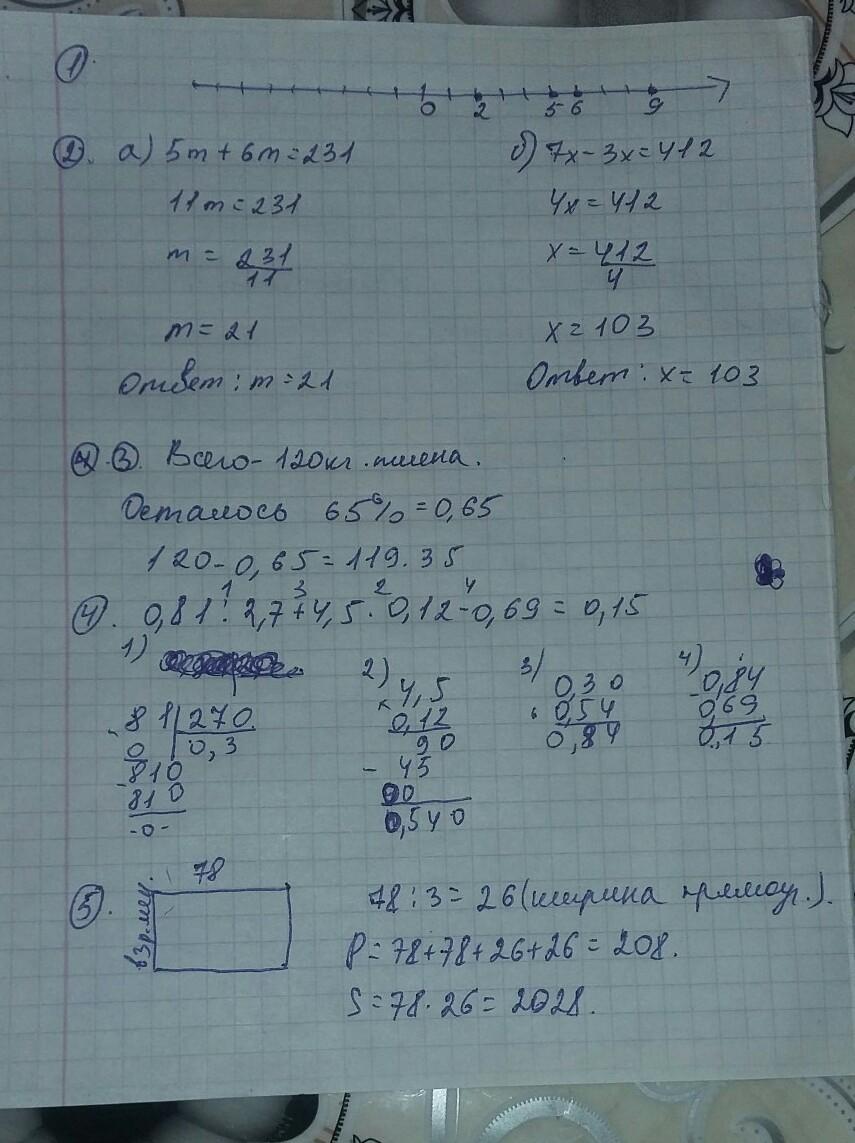 1.
0 2 5 6 9
2. а) 5m + 6m = 231 б) 7x - 3x = 412
11m = 231 4x = 412
m = 231/11 x = 412/4
m = 21 x = 103
Ответ: m = 21 Ответ: x = 103
3. Всего - 120 кг. пшена.
Осталось 65% = 0,65
120 - 0,65 = 119.35
1 3 2 4
4. 0,81 : 2,7 + 4,5 · 0,12 - 0,69 = 0,15
1) 2) 3) 4)
4,5 0,30 0,84
81 270 × 0,12 0,54 - 0,69
0 0,3 90 0,84 0,15
- 810 - 45
810 00
-0- 0,540
5. 78 78 : 3 = 26 (ширина прямоуг.).
в 3 р. меч. P = 78 + 78 + 26 + 26 = 208.
S = 78 · 26 = 2028.